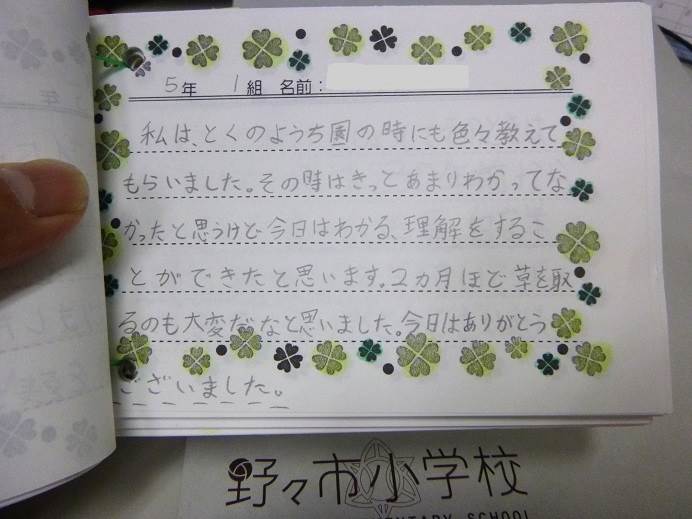 5年 1組 名前:
私は、とくのようち園の時にも色々教えて
もらいました。その時はきっとあまりわかってな
かったと思うけど今日はわかる、理解をするこ
とができたと思います。2カ月ほど草を取
るのも大変だなと思いました。今日はありがとう
ございました。
野々市小学校
ELEMENTARY SCHOOL